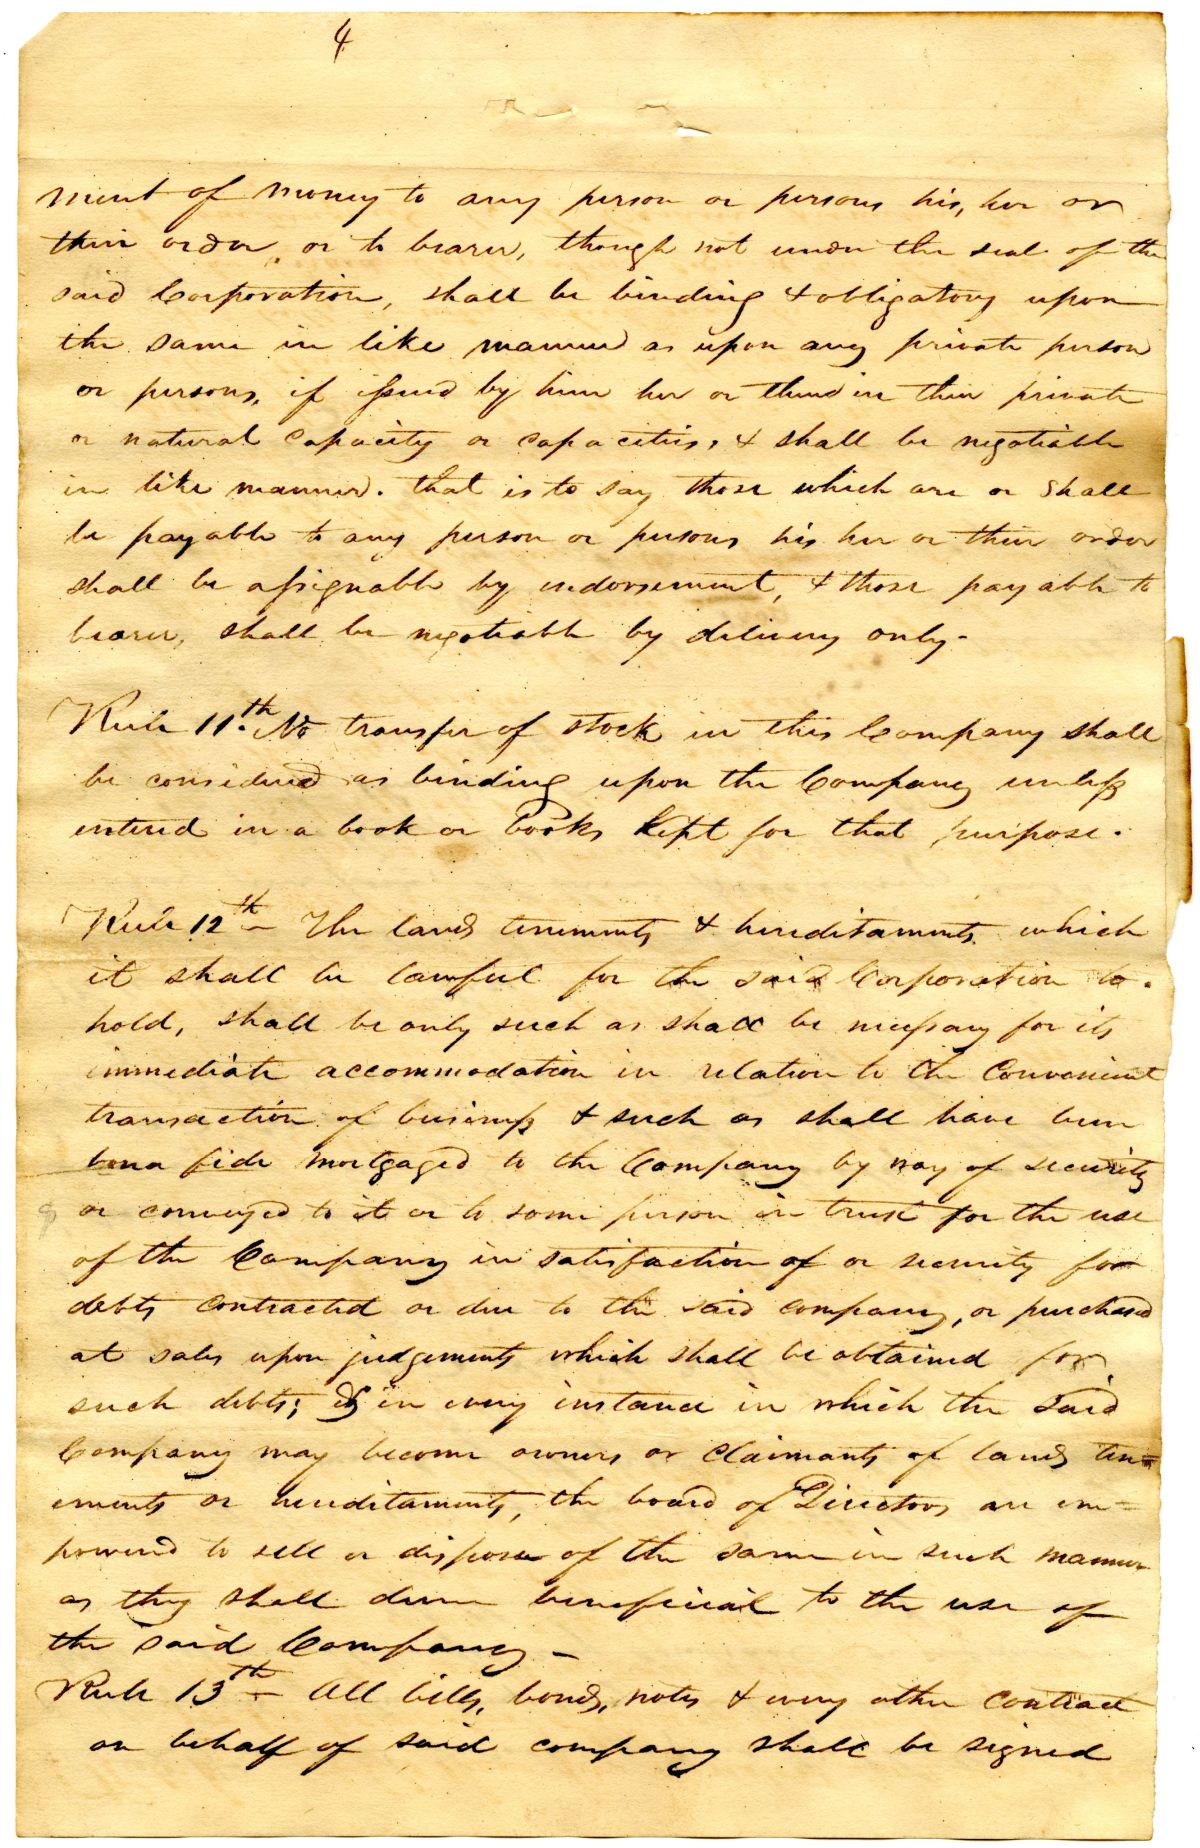 4
ment of money to any person or persons his, her or
their order, or to bearer, though not under the seal of the
said Corporation, shall be binding & obligatory upon
the same in like manner as upon any private person
or persons, if issued by him her or them in their private
or natural capacity or capacities, & shall be negotiable
in like manner. that is to say those which are or shall
be payable to any person or persons his her or their order
shall be assignable by indorsement, & those payable to
bearer, shall be negotiable by delivery only-
Rule 11th. No transfer of stock in this Company shall
be considered as binding upon the Company unless
entered in a book or books kept for that purpose.
Rule 12th - The lands tenements & hereditaments which
it shall be lawful for the said Corporation to
hold, shall be only such as shall be necessary for its
immediate accommodation in relation to the Convenient
transaction of business & such as shall have been
bona fide mortgaged to the Company by way of security
or conveyed to it or to some person in trust for the use
of the Company in satisfaction of or security for
debts contracted or due to the said company, or purchased
at sales upon judgements which shall be obtained for
such debts; & in every instance in which the said
Company may become owners or Claimants of lands ten-
ements or hereditaments, the board of Directors are em-
powered to sell or dispose of the same in such manner
as they shall deem beneficial to the use of
the said Company -
Rule 13th - All bills, bonds, notes & every other Contract
on behalf of said company shall be signed